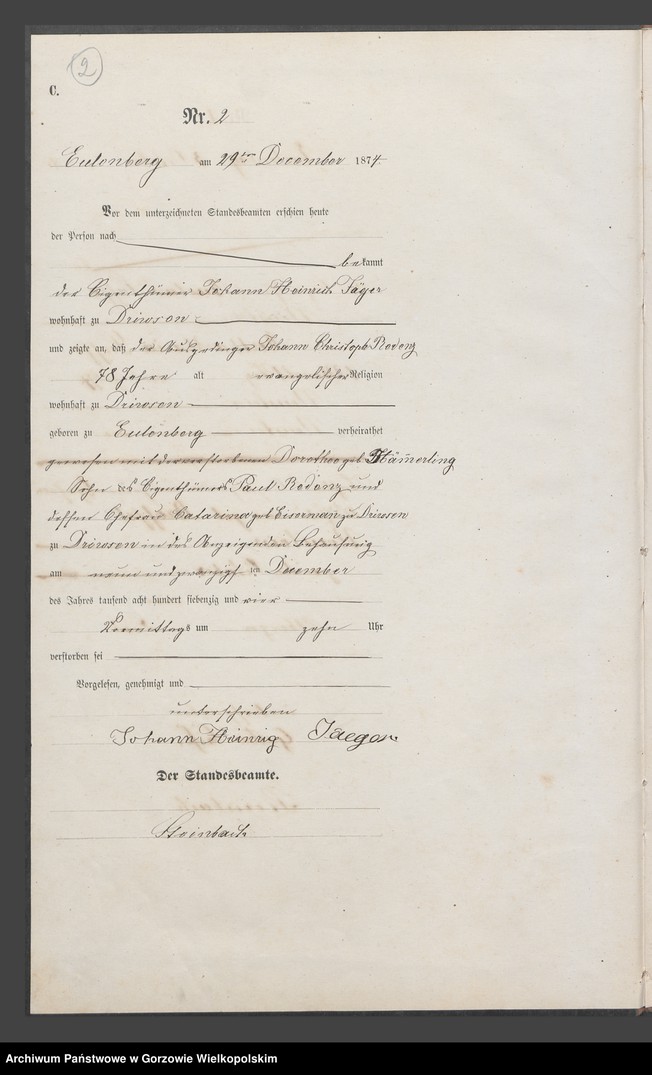 2
C.
Nr. 2
Eulenberg am 29ten December 1874.
Vor dem unterzeichneten Standesbeamten erschien heute
der Person nach
bekannt
der Eigenthümer Johann Heinrich Jäger
wohnhaft zu Driwsen
und zeigte an, daß der Ausgedinger Johann Christoph
78 Jahre alt evangelischer Religion
wohnhaft zu Driwsen
geboren zu Eulenberg verheirathet
gewesen mit der verstorbenen Dorothea geb Hämerling
Sohn des Eigenthümers Paul und
dessen Ehefrau Catarina geb Eiserman zu Driwsen
zu Driwsen in des Anzeigenden Behausung
am neun und zwanzigsten December
des Jahres tausend acht hundert siebenzig und vier
Vormittags um zehn Uhr
verstorben sei
Vorgelesen, genehmigt und
unterschrieben
Johann Heinrig Jaeger
Der Standesbeamte.
Steinbach
Archiwum Państwowe w Gorzowie Wielkopolskim